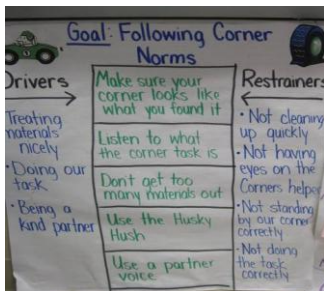 Goal: Following Corner
Norms
Drivers
Treating
materials
nicely
• Doing our
task
• Being a
kind partner
Make sure your
corner looks like
what you found it
Listen to what
the corner task is
Don't get too
many materials out
Use the Husky
Hush
Use a partner
voice
Restrainers
• Not cleaning
up quickly
• Not having
eyes on the
Corners helper
• Not standing
by our corner
correctly
• Not doing
the task
correctly